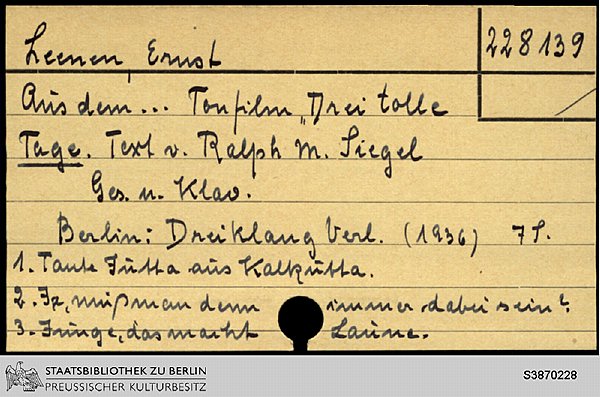 Leenen, Ernst
228139
Aus dem ... Tonfilm „Drei tolle
Tage. Text v. Ralph M. Siegel
Ges. u. Klav.
Berlin: Dreiklang Verl. (1936) 7 S.
1. Tante Jutta aus Kalkutta.
2. Ja, muß man denn immer dabei sein?
3. Junge, das macht Laune.
STAATSBIBLIOTHEK ZU BERLIN
PREUSSISCHER KULTURBESITZ
S3870228